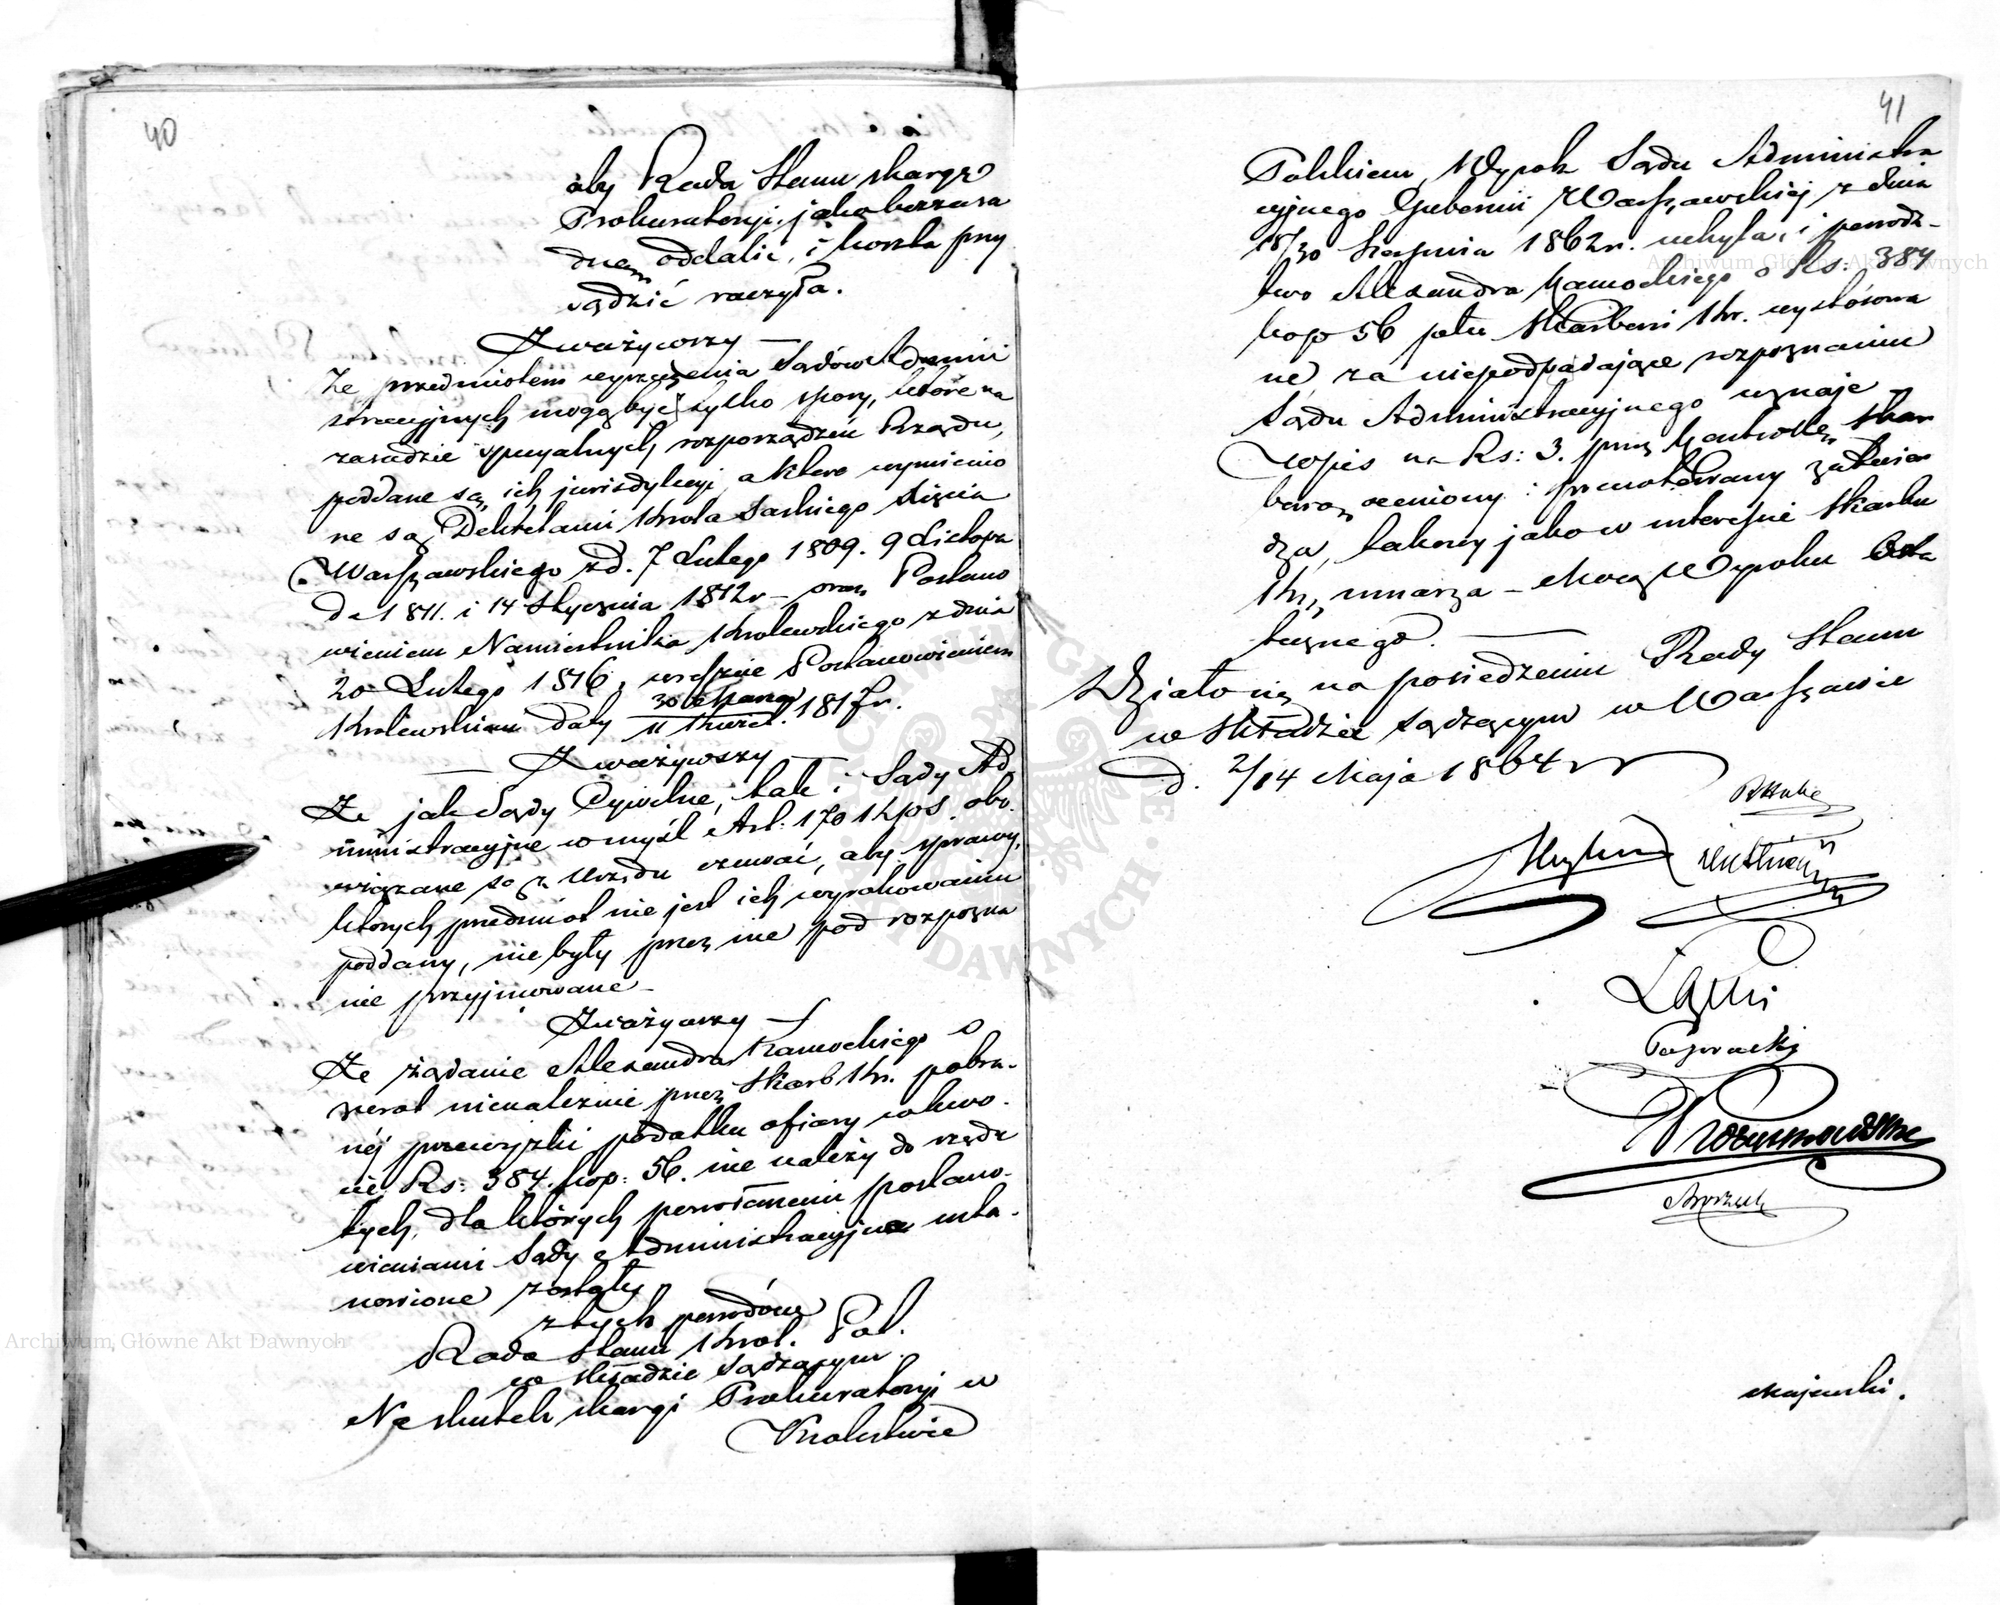 40
aby Rada Stanu skargę
Prokuratoryi, jako bezzasa
dną oddalić, i koszta przy
sądzić raczyła.
Zważywszy —
Że przedmiotem wyrzeczenia Sądów Admini
stracyjnych mogą być tylko spory, które na
zasadzie specyalnych rozporządzeń Rządu,
poddane są ich jurisdykcyi, a które wymienio
ne są Dekretami Króla Saskiego Xięcia
Warszawskiego z d. 7 Lutego 1809. 9 Listopa
da 1811. i 14 Stycznia 1812 r — oraz Postano
wieniem Namiestnika Królewskiego z dnia
20 Lutego 1816, wreszcie Postanowieniem
Królewskiem daty 30 Marca/11 Kwiet. 1817 r.
— Zważywszy —
Że jak Sądy Cywilne, tak i Sądy Ad
ministracyjne w myśl Art: 170 KPS. obo
wiązane są z Urzędu czuwać, aby sprawy,
których przedmiot nie jest ich wyrokowaniu
poddany, nie były przez nie pod rozpozna
nie przyjmowane —
Zważywszy —
Że żądanie Alexandra Kamockiego o
zwrot nienależnie przez Skarb Kr. pobra-
nej przewyżki podatku ofiary w kwo-
cie Rs: 384. kop: 56. nie należy do rzędu
tych, dla których powołanemi postano-
wieniami Sądy Administracyjne usta-
nowione zostały,
z tych powodów
Rada Stanu Król. Pol.
w Składzie Sądzącym
Na skutek skargi Prokuratoryi w
Królestwie
41
Polskiem, Wyrok Sądu Administra
cyjnego Gubernii Warszawskiej z dnia
18/30 Sierpnia 1862 r. uchyla, i powódz-
two Alexandra Kamockiego o Rs: 384
kop 56 pko Skarbowi Kr. wystosowa
ne za niepodpadające rozpoznaniu
Sądu Administracyjnego uznaje —
Wpis na Rs: 3. przez Kontrolę Skar
bową oceniony i prenotowany zatwier
dza, takowy jako w interesie Skarbu
Kr., umarza — Mocą Wyroku Osta
tecznego. —
Działo się na posiedzeniu Rady Stanu
w Składzie Sądzącym w Warszawie
d. 2/14 Maja 1864 r
Łącki
Majewski.
Archiwum Główne Akt Dawnych
Archiwum Główne Akt Dawnych